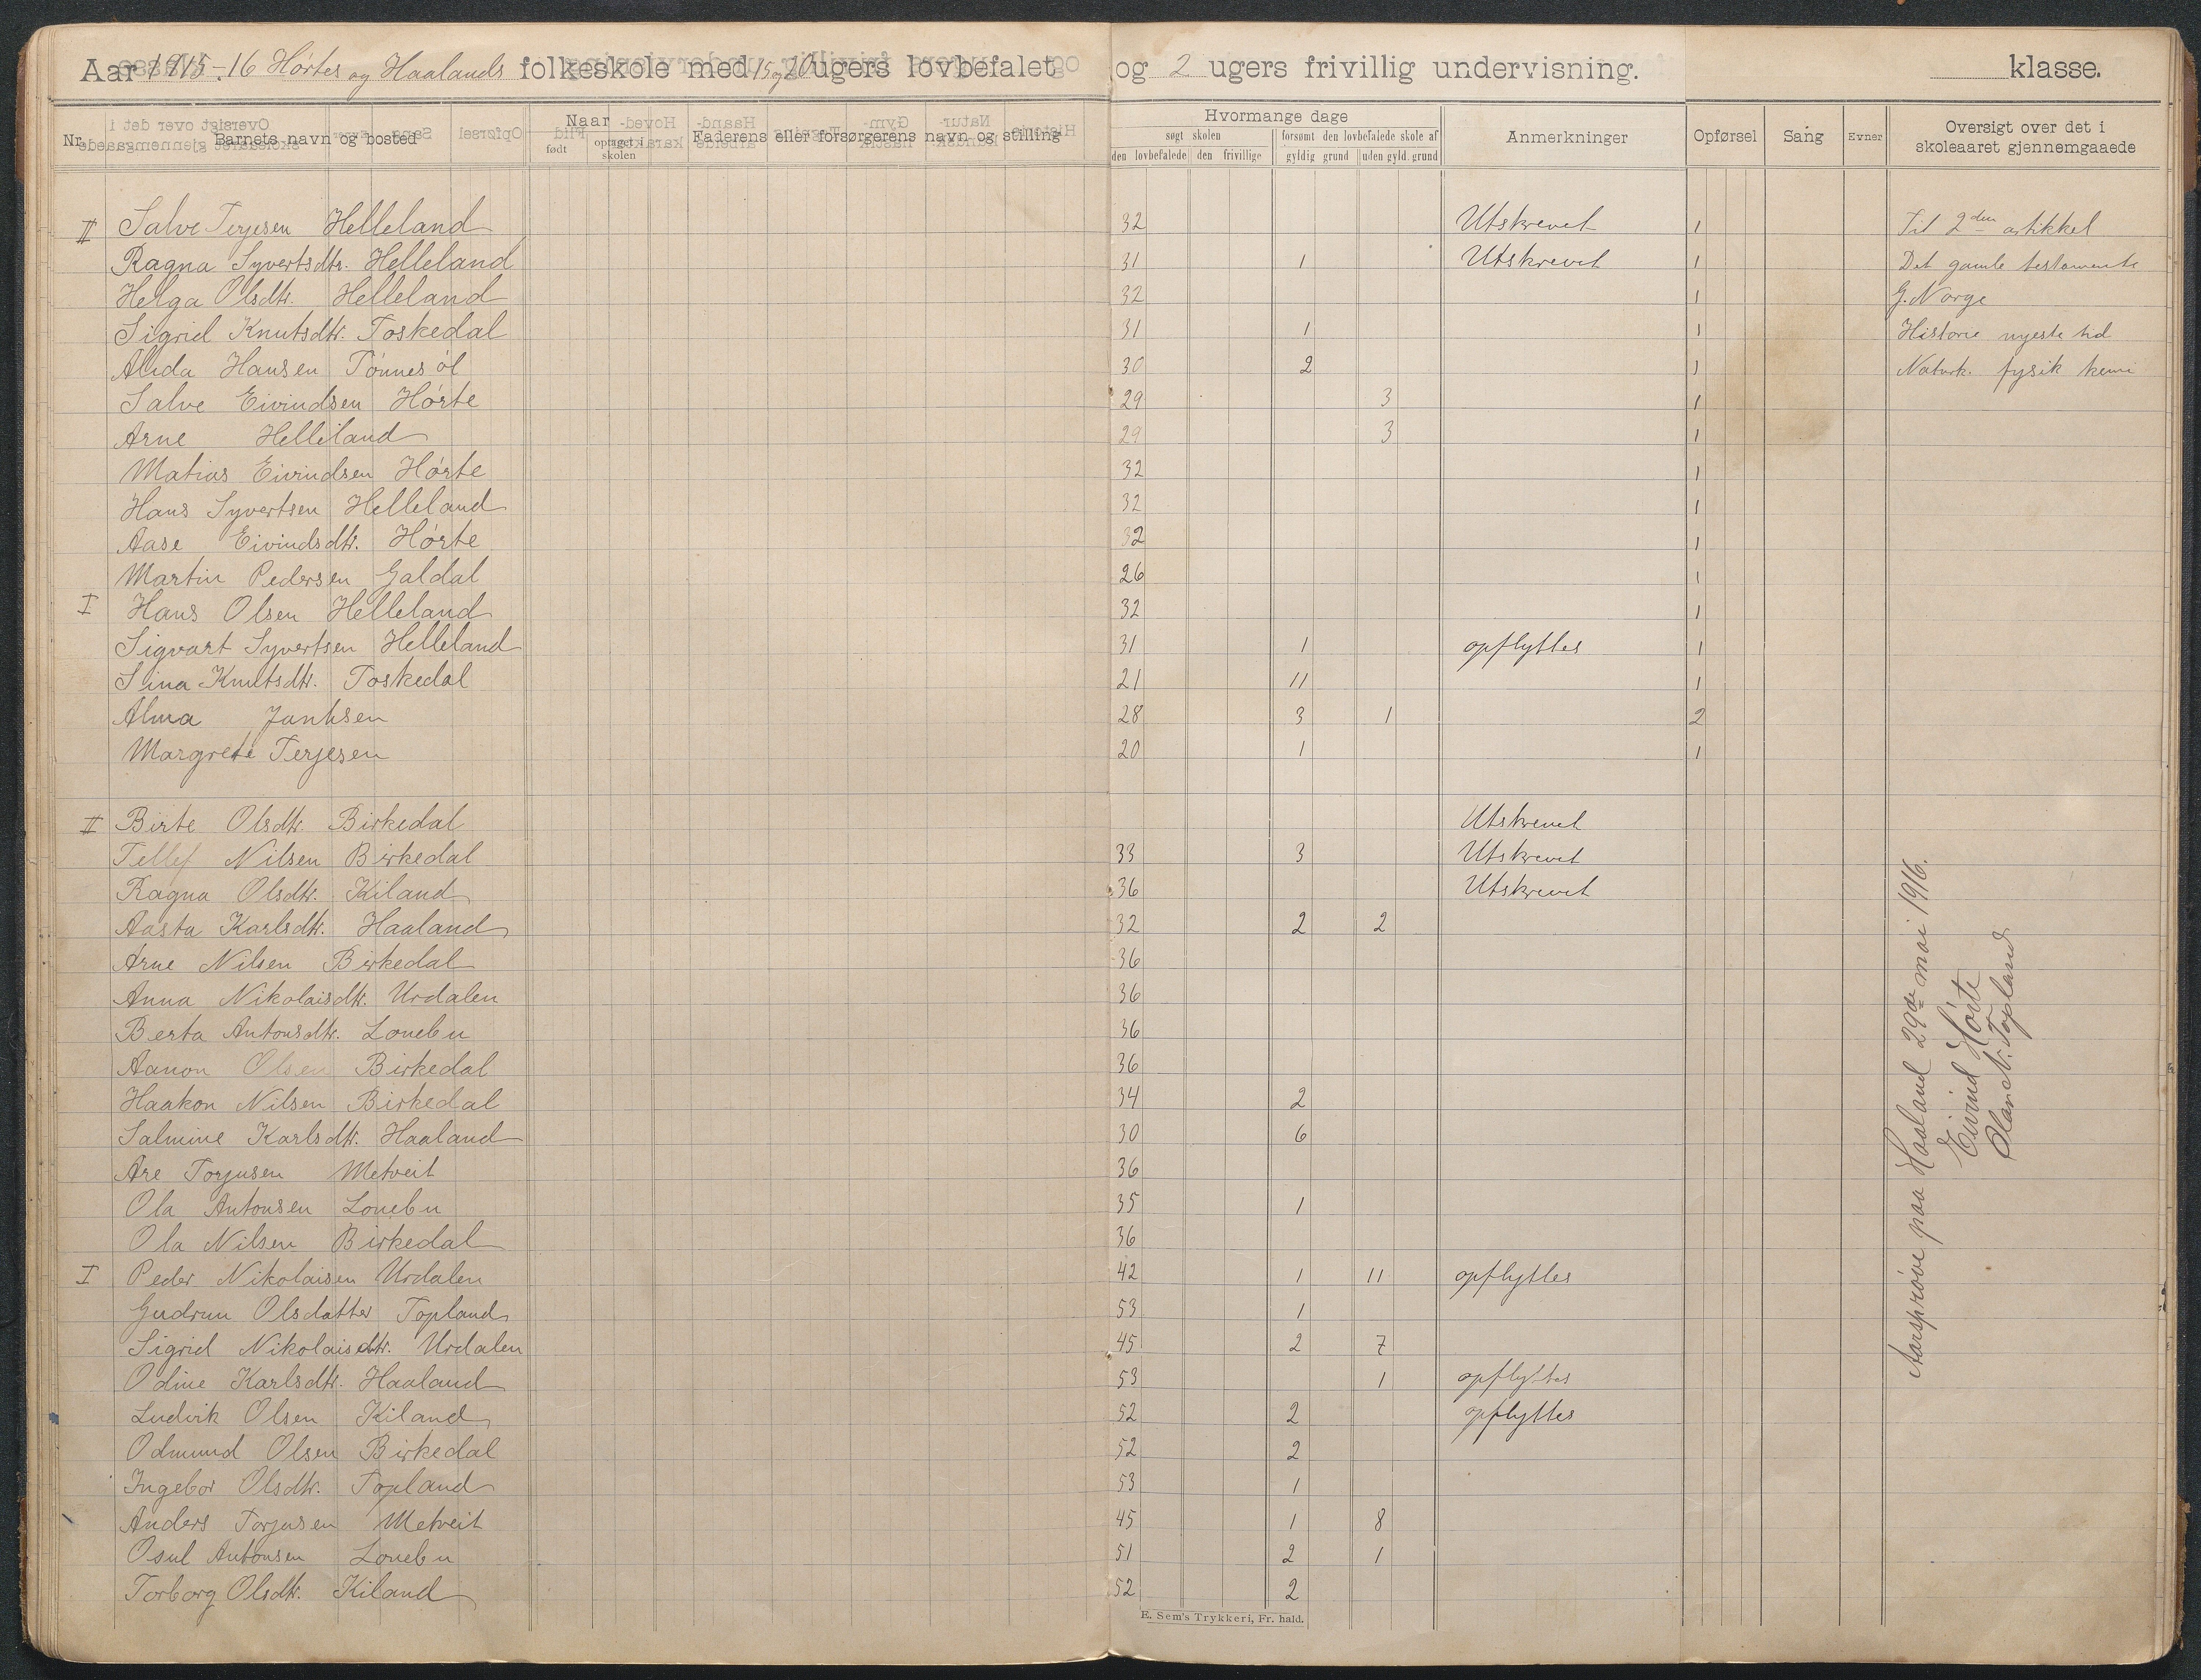 Aar 1915-16 Hørtes og Haalands folkeskole med 15 og 20 ugers lovbefalet og 2 ugers frivillig undervisning. klasse.
Nr. Barnets navn og bosted Naar født optaget i skolen Faderens eller forsørgerens navn og stilling Hvormange dage søgt skolen den lovbefalede den frivillige forsømt den lovbefalede skole af gyldig grund uden gyld. grund Anmerkninger Opførsel Sang Evner Oversigt over det i skoleaaret gjennemgaaede
II Salve Terjesen Helleland 32 Utskrevet 1 Til 2den artikkel
Ragna Syvertsdtr. Helleland 31 1 Utskrevet 1 Det gamle testamente
Helga Olsdtr. Helleland 32 1 G. Norge
Sigrid Knutsdtr. Toskedal 31 1 1 Historie nyeste tid
Alida Hansen Tønnesøl 30 2 1 Naturk. fysik kemi
Salve Eivindsen Hørte 29 3 1
Arne Helleland 29 3 1
Matias Eivindsen Hørte 32 1
Hans Syvertsen Helleland 32 1
Aase Eivindsdtr. Hørte 32 1
Martin Pedersen Galdal 26 1
I Hans Olsen Helleland 32 1
Sigvart Syvertsen Helleland 31 1 opflyttes 1
Sina Knutsdtr. Toskedal 21 11 1
Alma 28 3 1 2
Margrete Terjesen 20 1 1
II Birte Olsdtr. Birkedal Utskrevet
Tellef Nilsen Birkedal 33 3 Utskrevet
Ragna Olsdtr. Kiland 36 Utskrevet
Aasta Karlsdtr. Haaland 32 2 2
Arne Nilsen Birkedal 36
Anna Nikolaisdtr. Urdalen 36
Berta Antonsdtr. Lonebu 36
Aanon Olsen Birkedal 36
Haakon Nilsen Birkedal 34 2
Salmine Karlsdtr. Haaland 30 6
Are Torjusen Metveit 36
Ola Antonsen Lonebu 35 1
Ola Nilsen Birkedal 36
I Peder Nikolaisen Urdalen 42 1 11 opflyttes
Gudrun Olsdatter Topland 53 1
Sigrid Nikolaisdtr. Urdalen 45 2 7
Odine Karlsdtr. Haaland 53 1 opflyttes
Ludvik Olsen Kiland 52 2 opflyttes
Odmund Olsen Birkedal 52 2
Ingebor Olsdtr. Topland 53 1
Anders Torjusen Metveit 45 1 8
Osul Antonsen Lonebu 51 2 1
Torborg Olsdtr. Kiland 52 2
E. Sem's Trykkeri, Fr. hald.
Aarsprøve paa Haaland 29de mai 1916.
Eivind Hørte
Olav N. Topland